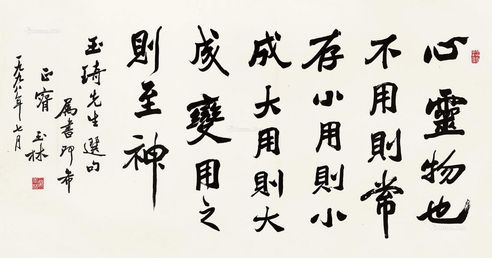 心靈物也
不用則常
存小用則小
成大用則大
成變用之
則至神
玉琦先生選句
屬書即希
正 玉林
一九九八年七月